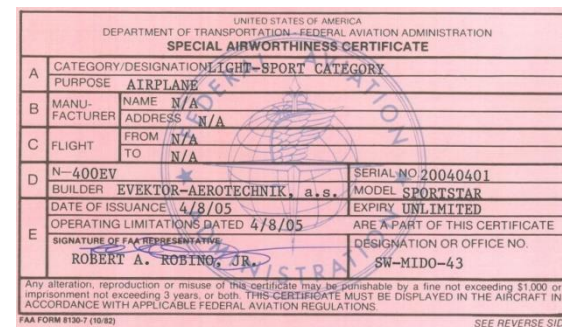 UNITED STATES OF AMERICA
DEPARTMENT OF TRANSPORTATION - FEDERAL AVIATION ADMINISTRATION
SPECIAL AIRWORTHINESS CERTIFICATE
A CATEGORY/DESIGNATION LIGHT-SPORT CATEGORY
PURPOSE AIRPLANE
B MANU-FACTURER NAME N/A
ADDRESS N/A
C FLIGHT FROM N/A
TO N/A
D N-400EV SERIAL NO. 20040401
BUILDER EVEKTOR-AEROTECHNIK, a.s. MODEL SPORTSTAR
E DATE OF ISSUANCE 4/8/05 EXPIRY UNLIMITED
OPERATING LIMITATIONS DATED 4/8/05 ARE A PART OF THIS CERTIFICATE
SIGNATURE OF FAA REPRESENTATIVE DESIGNATION OR OFFICE NO.
ROBERT A. ROBINO, JR. SW-MIDO-43
Any alteration, reproduction or misuse of this certificate may be punishable by a fine not exceeding $1,000 or
imprisonment not exceeding 3 years, or both. THIS CERTIFICATE MUST BE DISPLAYED IN THE AIRCRAFT IN
ACCORDANCE WITH APPLICABLE FEDERAL AVIATION REGULATIONS.
FAA FORM 8130-7 (10/82) SEE REVERSE SID
FEDERAL AVIATION ADMINISTRATION